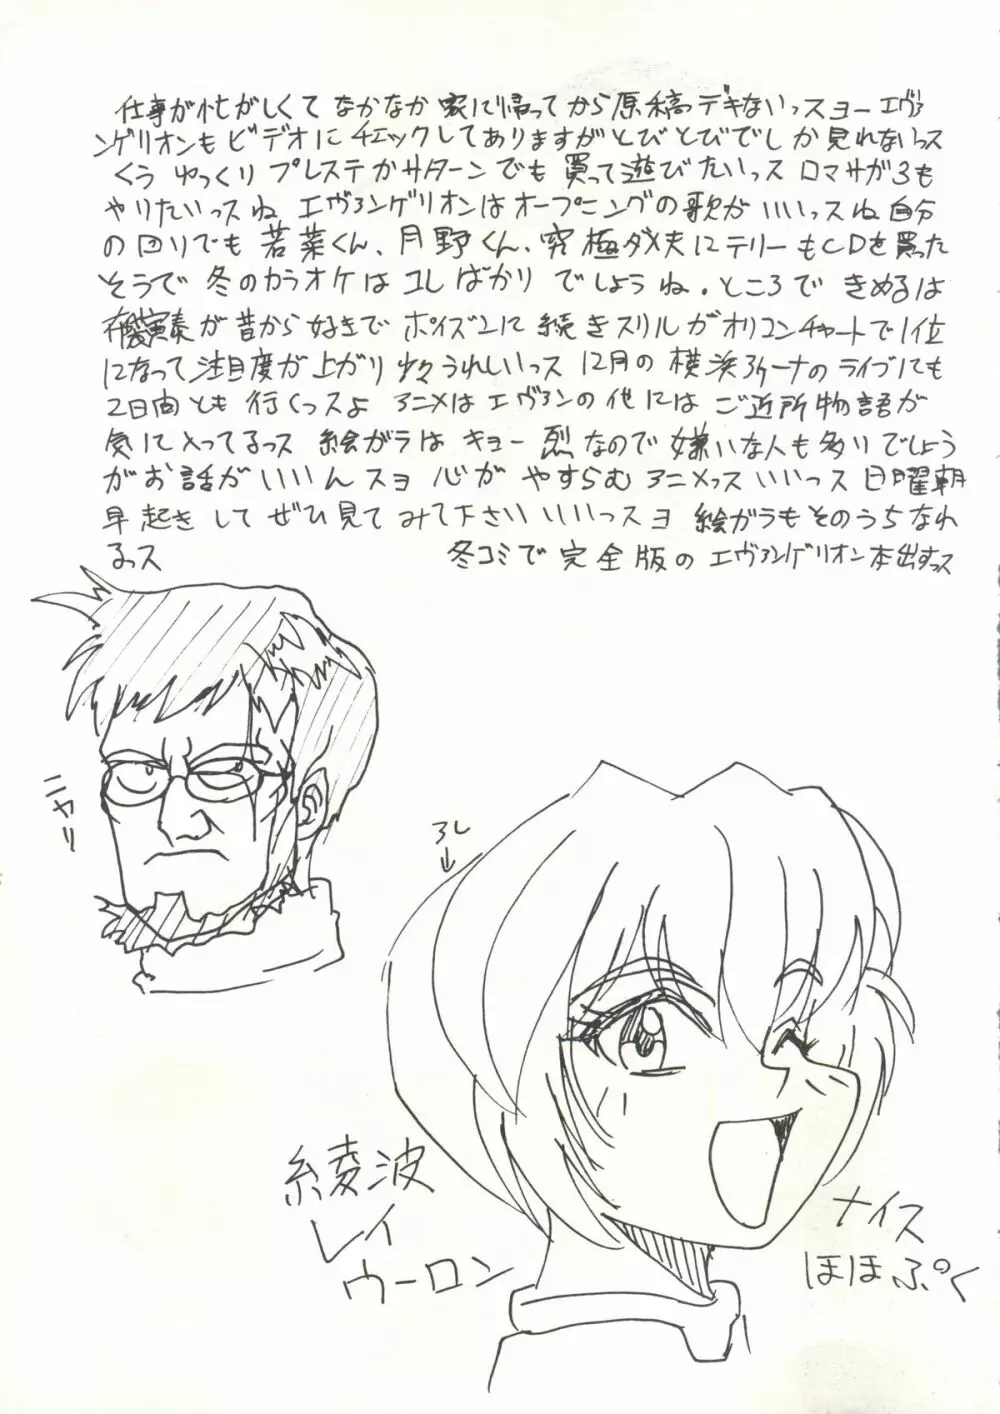 仕事が忙がしくて なかなか 家に帰ってから原稿デキないっスョー エヴァ
ンゲリオンも ビデオに チェックしてありますが とびとびでしか 見れないっス
くう ゆっくり プレステかサターンでも 買って遊びたいっス ロマサガ3も
やりたいっスね エヴァンゲリオンはオープニングの歌が いいっスね 自分
の回りでも 若菜くん、月野くん、究極ダメ夫にテリーもCDを買った
そうで 冬のカラオケは コレばかり でしょうね。ところで きめるは
が昔から好きで ポイズンに 続き スリルがオリコンチャートで1位
になって 注目度が上がり 少々うれしいっス 12月の 横浜アリーナのライブにも
2日間とも 行くっスよ アニメは エヴァンの他には ご近所物語が
気に入ってるっス 絵がラは キョー烈なので 嫌いな人も多いでしょう
がお話がいいんスョ 心が やすらむ アニメっス いいっス 日曜朝
早起き して ぜひ見て みて下さい いいっスョ 絵がラもそのうちなれ
るっス 冬コミで 完全版の エヴァンゲリオン本出すっス
ニヤリ
アレ
綾波
レイ
ウーロン
ナイス
ほほぷく